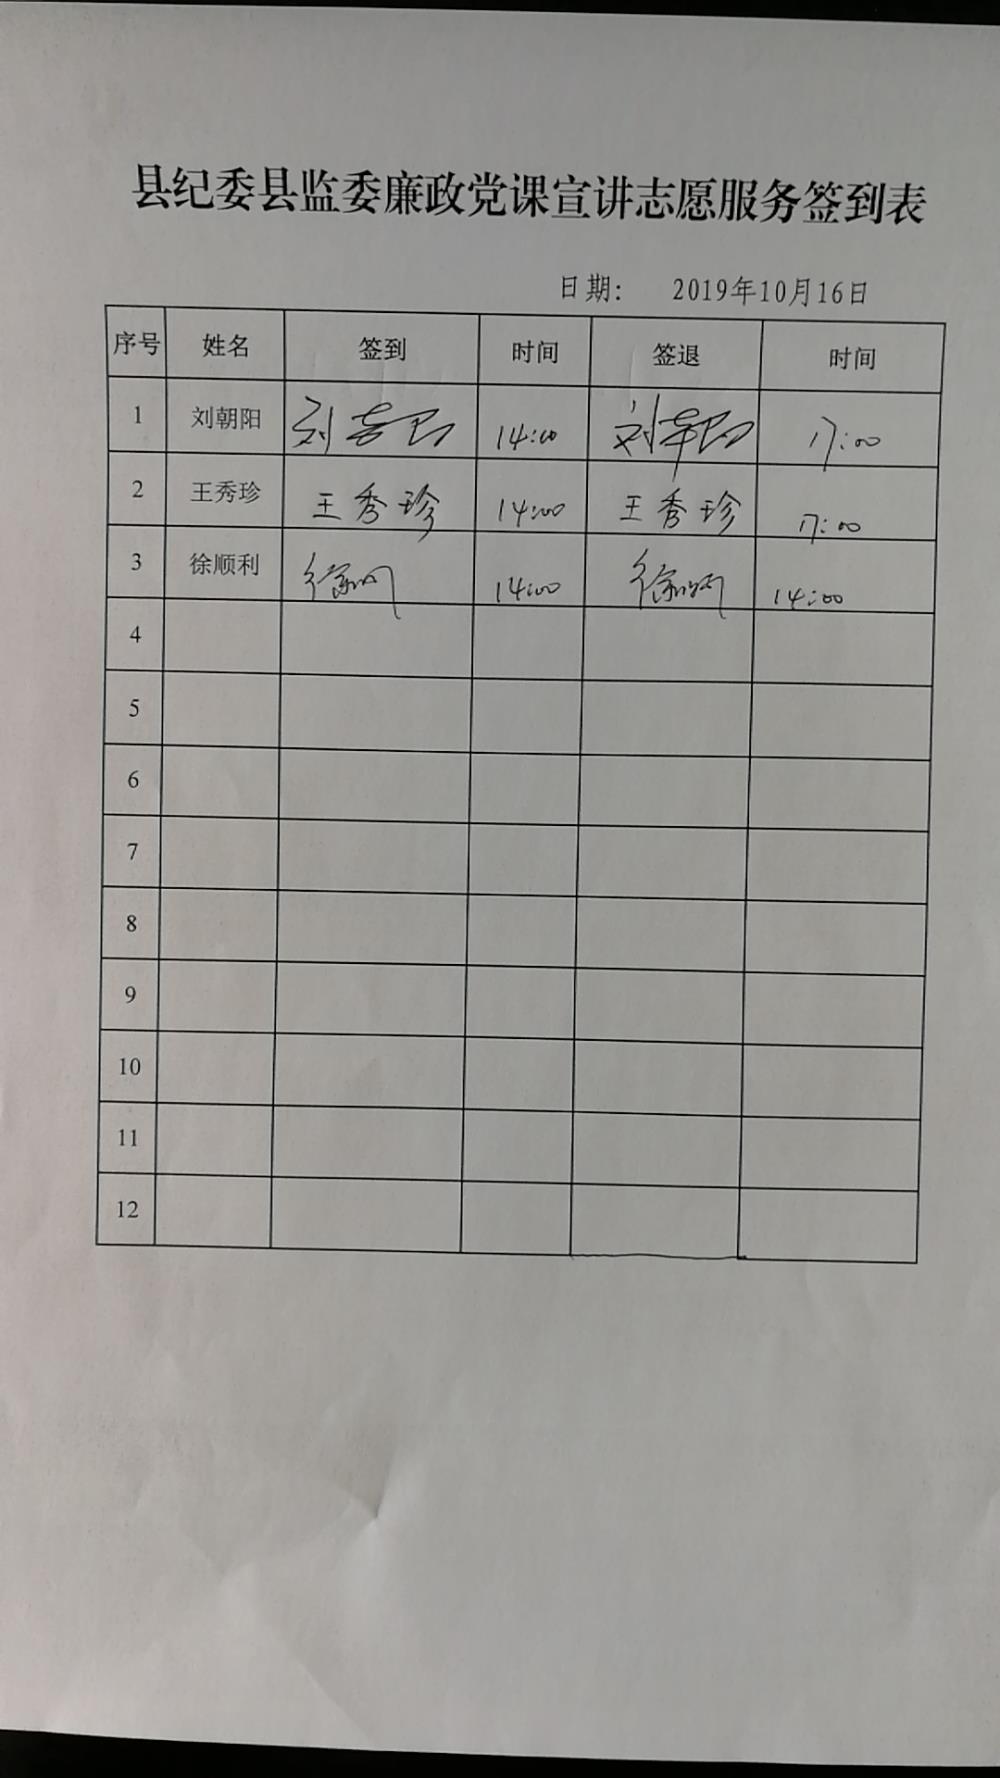 县纪委县监委廉政党课宣讲志愿服务签到表
日期: 2019年10月16日
序号 姓名 签到 时间 签退 时间
1 刘朝阳 刘朝阳 14:00 刘朝阳 17:00
2 王秀珍 王秀珍 14:00 王秀珍 17:00
3 徐顺利 徐顺利 14:00 徐顺利 14:00
4
5
6
7
8
9
10
11
12